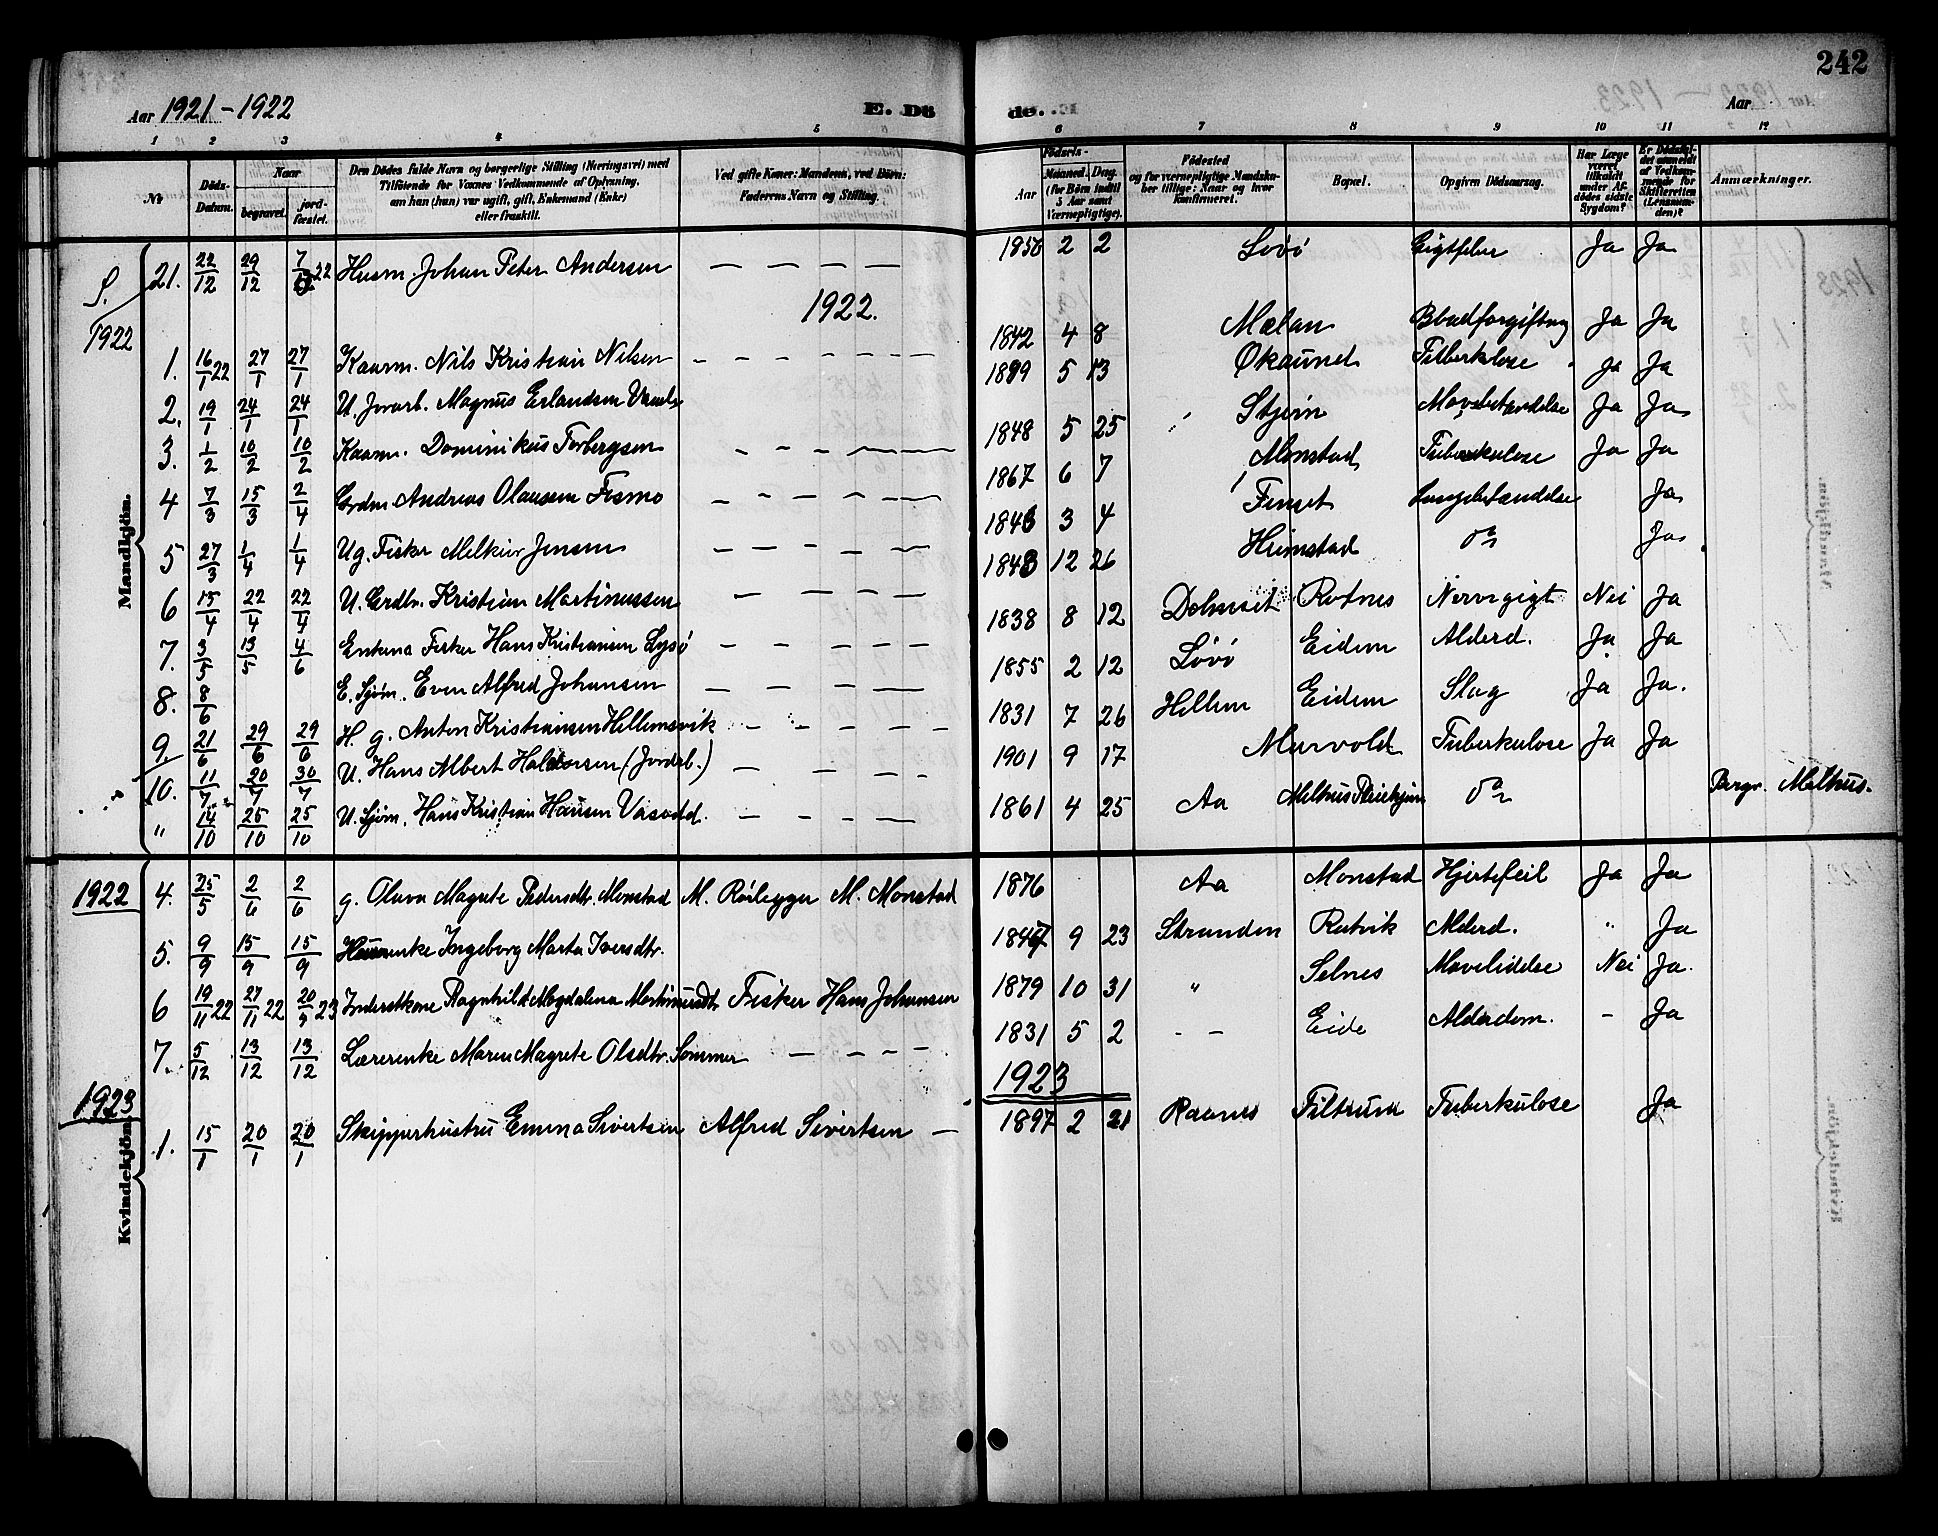 242
Aar 1921-1922 E. Dö
de. Aar
1 2 3 4 5 6 7 8 9 10 11 12
No
Döds-Datum.
Naar
begravet.
jord-fæstet.
Den Dödes fulde Navn og borgerlige Stilling (Næringsvei) med
Tilföiende for Voxnes Vedkommende af Oplysning,
om han (hun) var ugift, gift, Enkemand (Enke)
eller fraskilt.
Ved gifte Koner: Mandens, ved Börn:
Faderens Navn og Stilling.
Födsels-
Aar
Maaned. Dag.
(for Börn indtil
5 Aar samt
Værnepligtige).
Födested
og for værnepligtige Mandskaber tillige: Naar og hvor
konfirmeret.
Bopæl.
Opgiven Dödsaarsag.
Har Læge
været
tilkaldt
under Afdödes sidste
Sygdom?
Er Dödsfaldet anmeldt
af Vedkommende for
Skifteretten
(Lensmanden)?
Anmærkninger.
Mandkjön.
21. 22/12 29/12 7/1 22 Husm. Johan Peter Andersen — — — — 1856 2 2 Lovö Gigtfeber Ja Ja
1922
1922.
1. 16/1 22 27/1 27/1 Kaarm. Nils Kristian Nilsen — — — — 1842 4 8 Mælan Blodforgiftng Ja Ja
2. 19/1 24/1 24/1 U. Jorarb. Magnus Erlandsen 1899 5 13 Økaund Tuberkulose Ja Ja
3. 1/2 10/2 10/2 Kaarm. Dominikus Torbergsen — — — — 1848 5 25 Stjørn Mavebetændelse Ja Ja
4 7/3 15/3 2/4 Grdm Andreas Olausen Tismo — — — — 1867 6 7 Monstad Tuberkulose Ja Ja
5 27/3 1/4 1/4 Ug. Fisker Melkior Jensen — — — — 1843 3 4 Finset Lungebetændelse Ja
6 15/4 22/4 22/4 U. Grdbr. Kristian Martinussen — — — — 1843 12 26 Heimstad do Ja
7. 3/5 13/5 4/6 Enkema Fisker Hans Kristiansen Lysö — — — — 1838 8 12 Dolmset Rotnes Nervegigt Nei Ja
8. 8/6 E. Sjøm. Even Alfred Johansen — — — — 1855 2 12 Lövö Eidem Alderd. Ja Ja
9. 21/6 29/6 29/6 H. g. Anton Kristiansen Hellemsvik — — — — 1831 7 26 Hellem Eidem Slag Ja Ja.
10. 11/7 20/7 30/7 U. Hans Albert Haldorsen (Jordsb.) — — — — 1901 9 17 Murvold Tuberkulose Ja Ja
" 14/10 25/10 25/10 U. Sjøm. Hans Kristian Hansen Vasodd. — — — — 1861 4 25 Aa Melhus do Begr. Melhus.
Kvindekjön.
1922 4. 25/5 2/6 2/6 g. Olava Magrete Pedersdtr. Monstad M. Rörlegger M. Monstad 1876 Aa Monstad Hjertefeil Ja Ja
5. 9/9 15/9 15/9 Ingeborg Marta Iversdtr. 1847 9 23 Stranden Rutvik Alderd. " Ja
6 19/11 22 27/11 22 20/5 23 Inderstkone Ragnhild Magdalena Martinusdtr Fisker Hans Johansen 1879 10 31 " Selnes Maveliddelse Nei Ja.
7. 5/12 13/12 13/12 Lærerenke Maren Magrete Olsdtr. Sommer — — — — 1831 5 2 - - Eide Alderdom. - Ja
1923
1923
1. 15/1 20/1 20/1 Skipperhustru Emma Sivertsen Alfred Sivertsen — 1897 2 21 Raanes Tiltrum Tuberkulose Ja